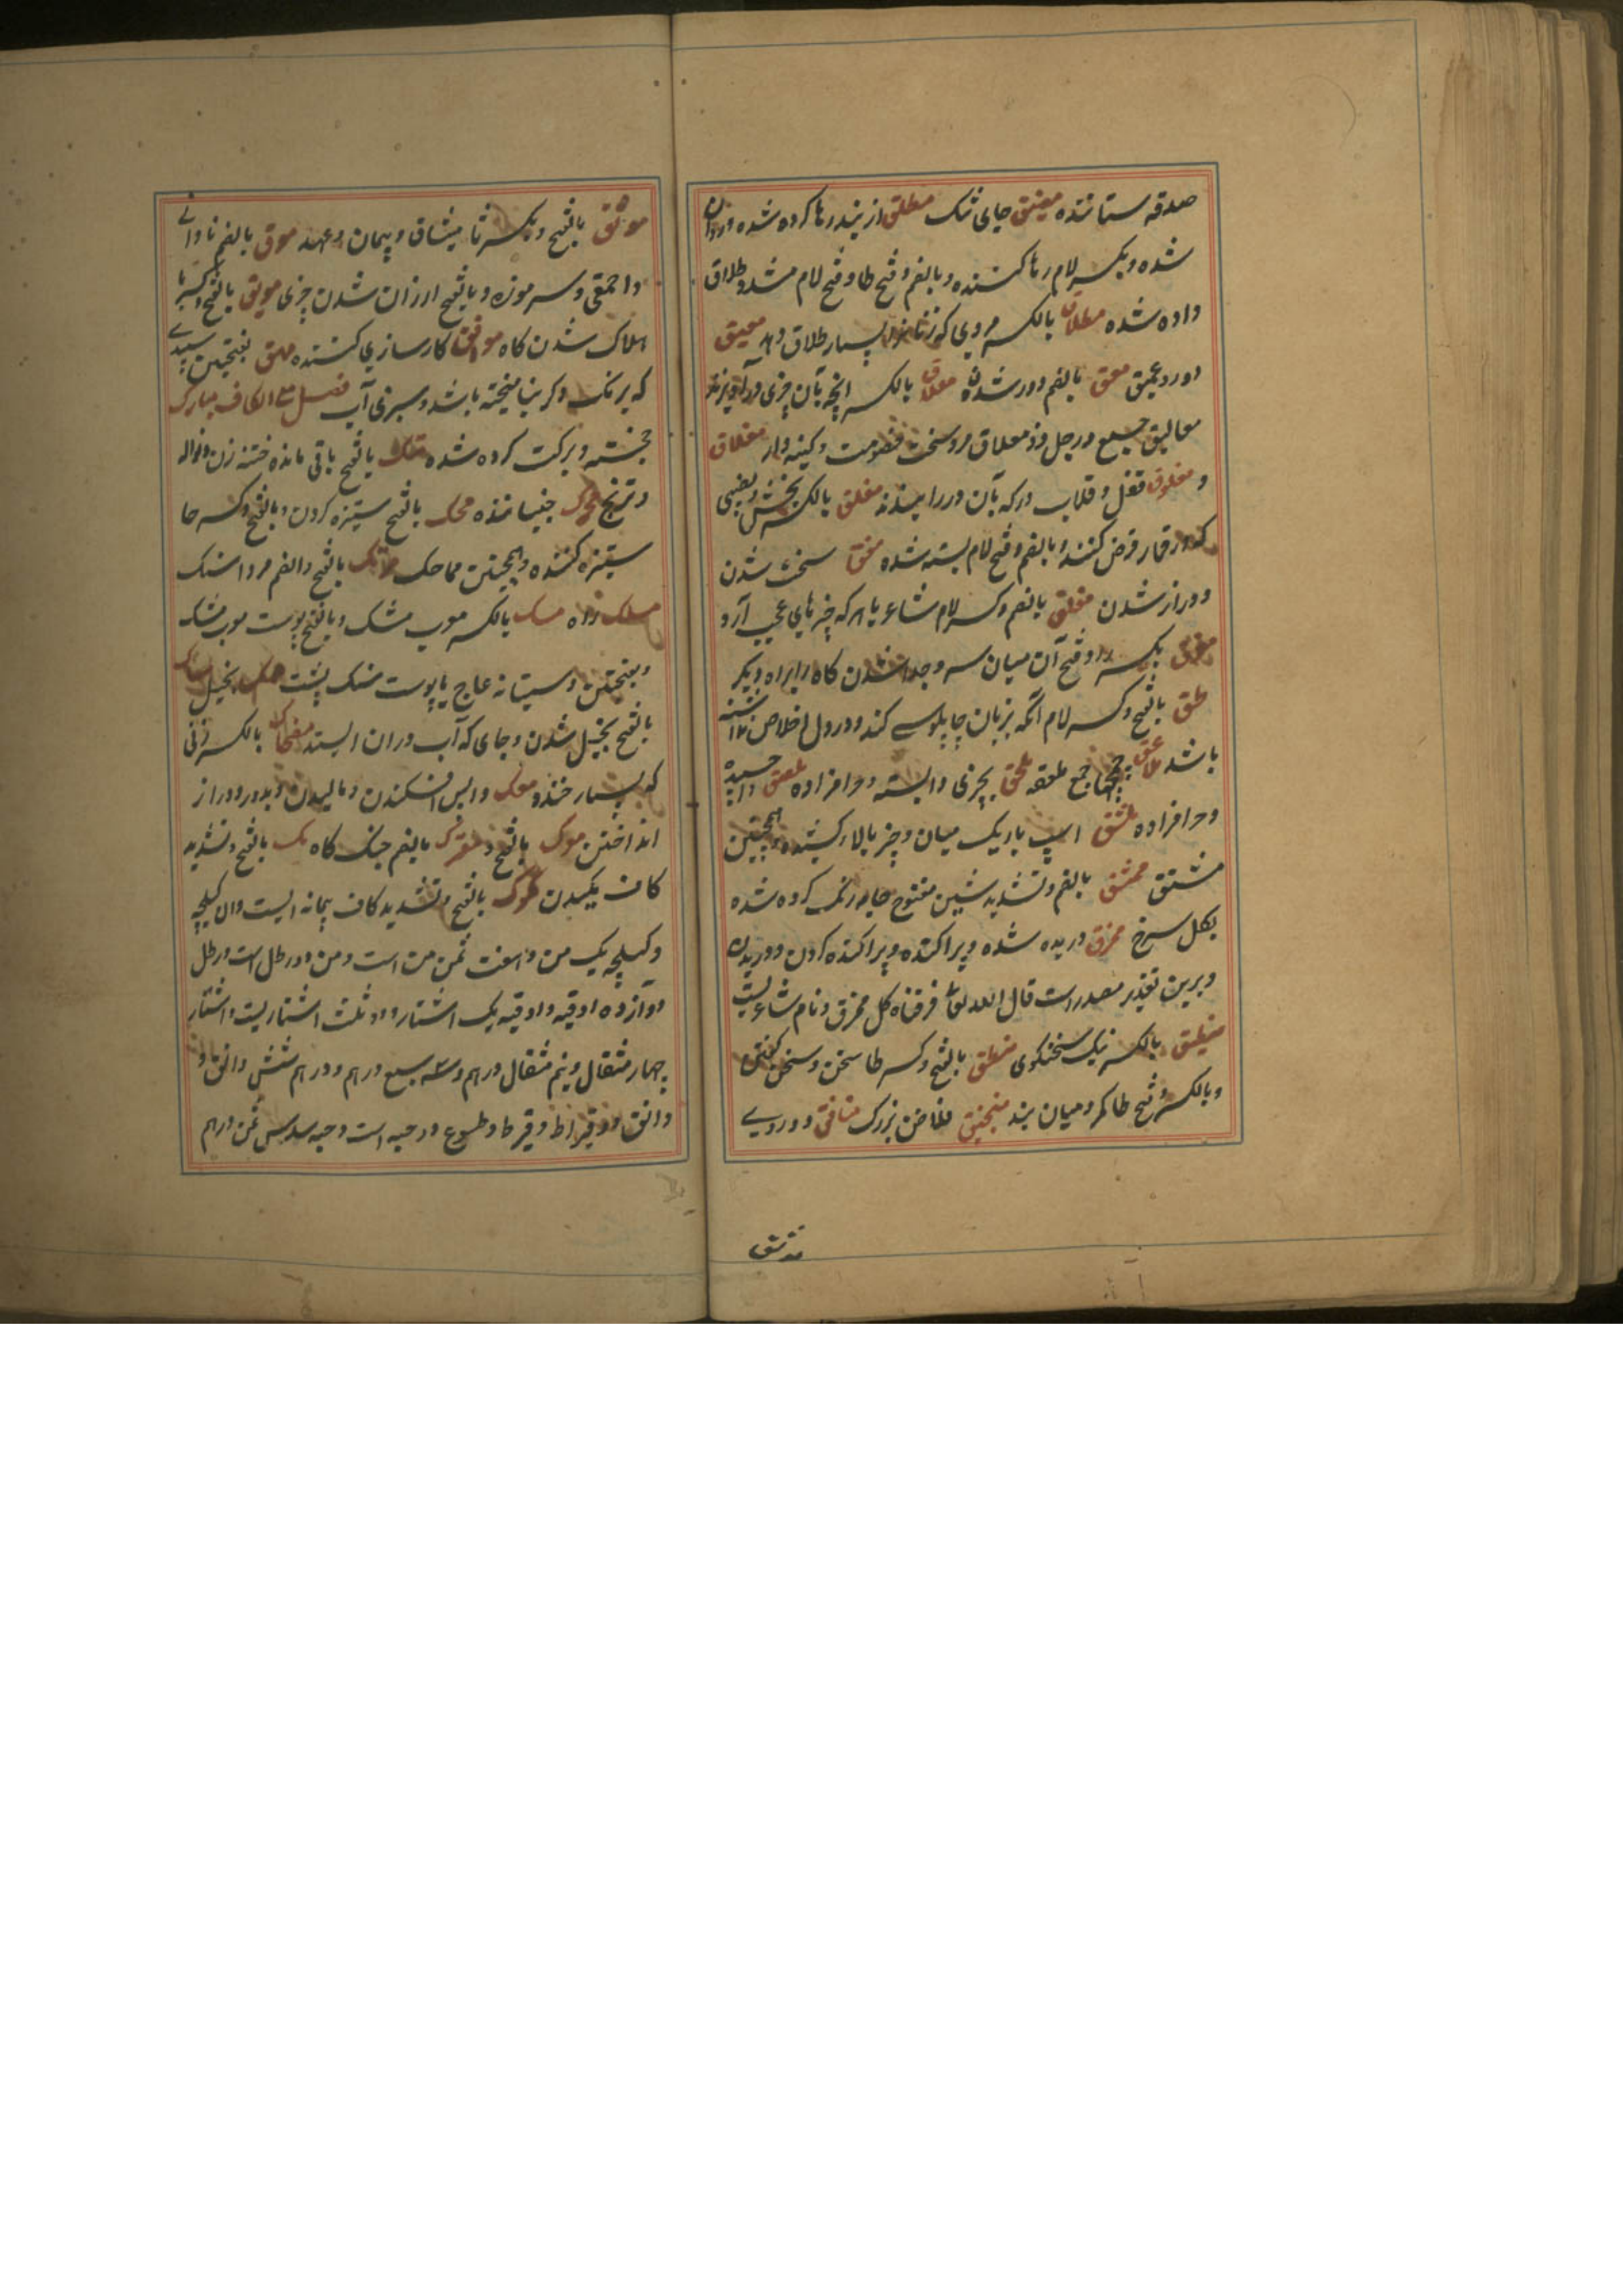 صدقه ستاننده مضیق جای تنک مطلق از بند رها کرده شده و روان
شده و بکسر لام رها کننده و بالضم و فتح طا و فتح لام مشدد طلاق
داده شده مطلاق بالکسر مردی که زنانرا بسیار طلاق دهد معیق
دور و عمیق معق بالضم دور شدن معلاق بالکسر انچه بآن چیزی در آویزند
معالیق جمع و رجل ذو معلاق مرد سخت خصومت و کینه دار مغلاق
و مغلوق قفل و قلاب در که بآن در را ببندند مغلق بالکسر بخش و نصیبی
که در قمار فرض کنند و بالضم و فتح لام بسته شده سخت شدن
و دراز شدن مفلق بالضم و کسر لام شاعر یا هر که چیزهای عجیب آرد
مفرق بکسر را و فتح آن میان سر و جدا شدن کاه راه از راه دیکر
ملق بالفتح و کسر لام آنکه بزبان چاپلوسی کند و در دل اخلاص نداشته
باشد جمع ملعقه ملحق بچیزی وابسته و حرامزاده ملصق چسپیده
و حرامزاده ممشق اسپ باریک میان و چیز بالا کشیده و همچنین
مشتق ممشق بالضم و تشدید شین مفتوح جامه رنک کرده شده
بکل سرخ ممزق دریده شده و پراکنده و پراکنده کردن و دریدن
و برین تقدیر مصدر است قال الله تعالی مزقناه کل ممزق و نام شاعریست
منطیق بالکسر نیک سخنکوی منطق بالفتح و کسر طا سخن و سخن کفتن
و بالکسر و فتح طا کمر و میان بند منجنیق فلاخن بزرک منافق دورویے
موثق بالفتح و بکسر ثا میثاق و پیمان و عهد موق بالضم نادانے
و احمقی و سر موزه و بالفتح ارزان شدن چیزی موبق بالفتح و کسر با
هلاک شدن کاه موافق کارسازی کننده مهق بفتحتین سپیدے
که برنک دکر نیامیخته باشد و سبزی آب فصل مع الکاف مبارک
خجسته و برکت کرده شده متک بالفتح باقی مانده ختنه زن و نواله
و ترنج محرک جنباننده محک بالفتح ستیزه کردن و بالفتح و کسر حا
ستیزه کننده و همچنین مماحک مرتک بالفتح و الضم مرداسنک
مسلک راه مسک بالکسر معرب مشک و بالفتح پوست معرب مشک
و بفتحتین دستیانه عاج یا پوست سنک پشت ممسک بخیل مساک
بالفتح بخیل شدن و جای که آب دران ایستد مضحاک بالکسر زنی
که بسیار خندد معک واپس افکندن و مالیدن و بدور و دراز
انداختن موک بالفتح و معرک بالضم جنک کاه مک بالفتح و تشدید
کاف مکیدن مکوک بالفتح و تشدید کاف پیمانه ایست و ان کیلچه
و کیلچه یک من و هفت ثمن من است و من دو رطل است و رطل
دوازده اوقیه و اوقیه یک استار و دو ثلث استاریست و استار
چهار مثقال و نیم مثقال درهم و سه سبع درهم و درهم شش دانق و
دانق دو قیراط و قیراط دو طسوج و دو حبه است و حبه سدس ثمن درهم